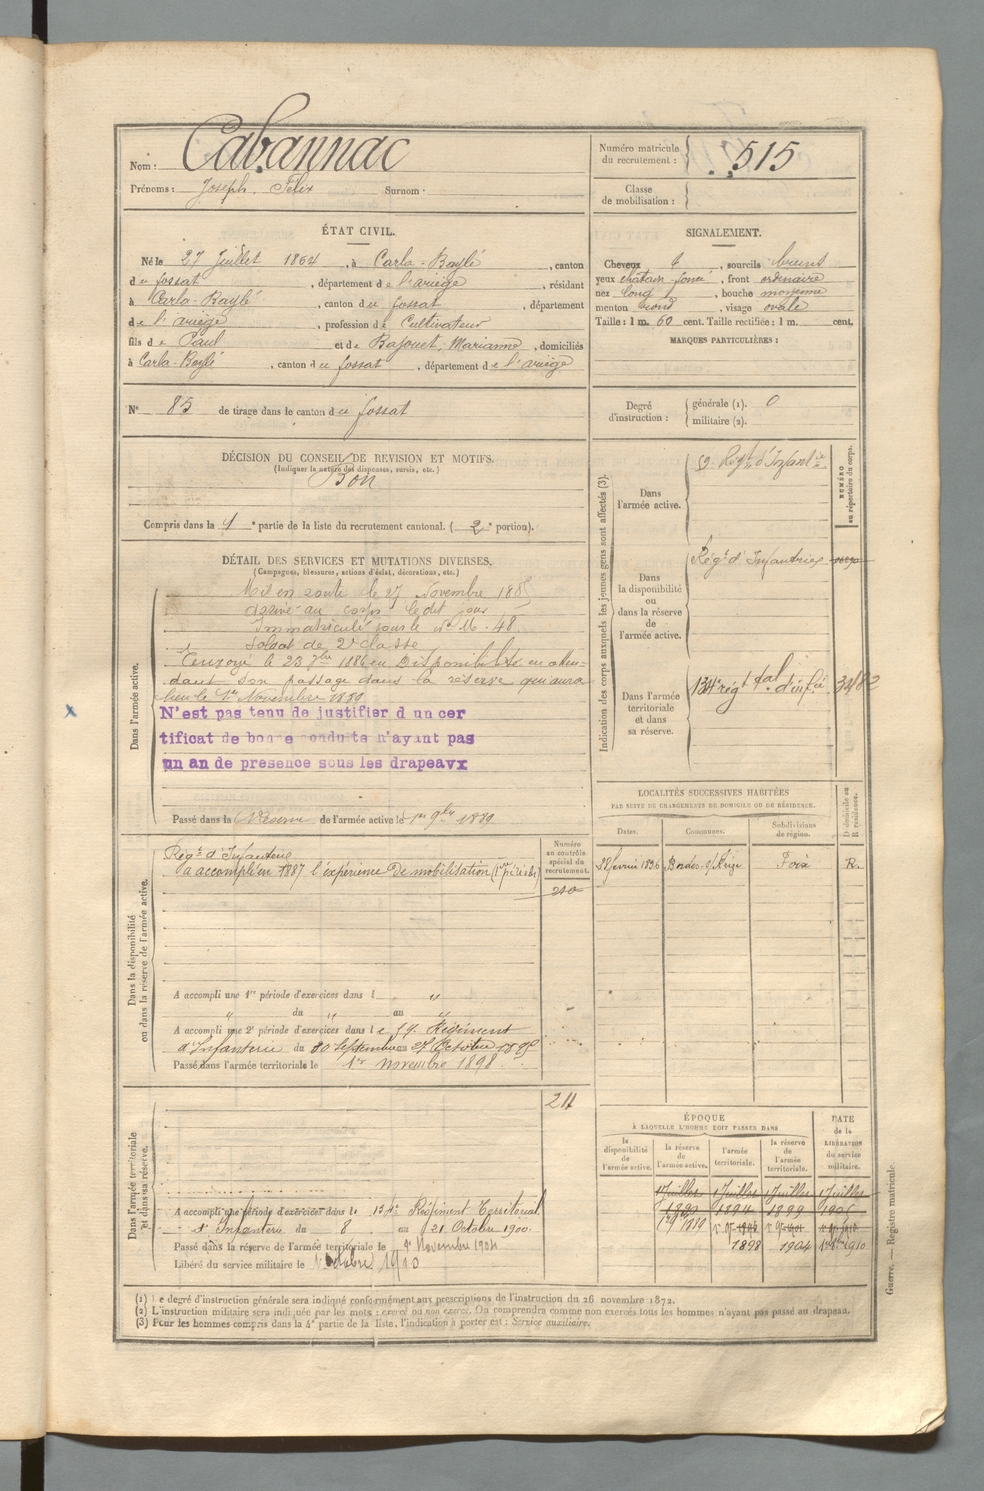 Nom : Cabannac
Prénoms : Joseph Félix Surnom :
Numéro matricule du recrutement : 515
Classe de mobilisation :
ÉTAT CIVIL.
Né le 27 Juillet 1864, à Carla-Baylé, canton
du fossat, département de l'ariège, résidant
à Carla-Baylé, canton du fossat, département
de l'ariège, profession de Cultivateur
fils de Paul et de Bajouet, Marianne, domiciliés
à Carla-Baylé, canton du fossat, département de l'ariège
N° 85 de tirage dans le canton du fossat
SIGNALEMENT.
Cheveux et, sourcils bruns
yeux châtain foncé, front ordinaire
nez long, bouche moyenne
menton rond, visage ovale
Taille : 1 m. 60 cent. Taille rectifiée : 1 m. cent.
MARQUES PARTICULIÈRES :
Degré d'instruction : générale (1). 0
militaire (2).
DÉCISION DU CONSEIL DE REVISION ET MOTIFS.
(Indiquer la nature des dispenses, sursis, etc.)
Bon
Compris dans la 1e partie de la liste du recrutement cantonal. (2e portion).
DÉTAIL DES SERVICES ET MUTATIONS DIVERSES.
(Campagnes, blessures, actions d'éclat, décorations, etc.)
Dans l'armée active.
Mis en route le 27 Novembre 1885
arrivé au corps le dit jour
Immatriculé sous le No M. 48
Soldat de 2e classe
Renvoyé le 23 7bre 1886 en Disponibilité en atten-
dant son passage dans la réserve qui aura
lieu le 1er Novembre 1889
N'est pas tenu de justifier d un cer
tificat de bonne conduite n'ayant pas
un an de presence sous les drapeavx
Passé dans la Réserve de l'armée active le 1er 9bre 1889
Indication des corps auxquels les jeunes gens sont affectés (3).
NUMÉRO au répertoire du corps.
Dans l'armée active.
Régt d'Infantie
Dans la disponibilité ou dans la réserve de l'armée active.
Régt d'Infanterie
Dans l'armée territoriale et dans sa réserve.
134e régt tal d'infie 3482
LOCALITÉS SUCCESSIVES HABITÉES
PAR SUITE DE CHANGEMENTS DE DOMICILE OU DE RÉSIDENCE.
Dates. Communes. Subdivisions de région. D domicile ou R résidence.
février 1896 Bordes-s/-Arize Foix R.
Dans la disponibilité ou dans la réserve de l'armée active.
Numéro au contrôle spécial du recrutement.
210
Régt d'Infanterie
a accompli en 1887 l'expérience de mobilisation
A accompli une 1re période d'exercices dans l "
" du " au "
A accompli une 2e période d'exercices dans le 59 Régiment
d'Infanterie du 30 Septembre au 27 Octobre 1895
Passé dans l'armée territoriale le 1er novembre 1898
Dans l'armée territoriale et dans sa réserve.
211
A accompli une période d'exercices dans le 134e Régiment Territorial
d'Infanterie du 8 au 21 Octobre 1900.
Passé dans la réserve de l'armée territoriale le 1er Novembre 1904
Libéré du service militaire le 1 octobre 1910
ÉPOQUE
À LAQUELLE L'HOMME DOIT PASSER DANS
la disponibilité de l'armée active. la réserve de l'armée active. l'armée territoriale. la réserve de l'armée territoriale.
DATE de la LIBÉRATION du service militaire.
1 Juillet 1 Juillet 1 Juillet 1 Juillet
1890 1894 1899 1905
1898 1904 1910
Guerre. — Registre matricule.
(1) Le degré d'instruction générale sera indiqué conformément aux prescriptions de l'instruction du 26 novembre 1872.
(2) L'instruction militaire sera indiquée par les mots : exercé ou non exercé. On comprendra comme non exercés tous les hommes n'ayant pas passé au drapeau.
(3) Pour les hommes compris dans la 4e partie de la liste, l'indication à porter est : Service auxiliaire.